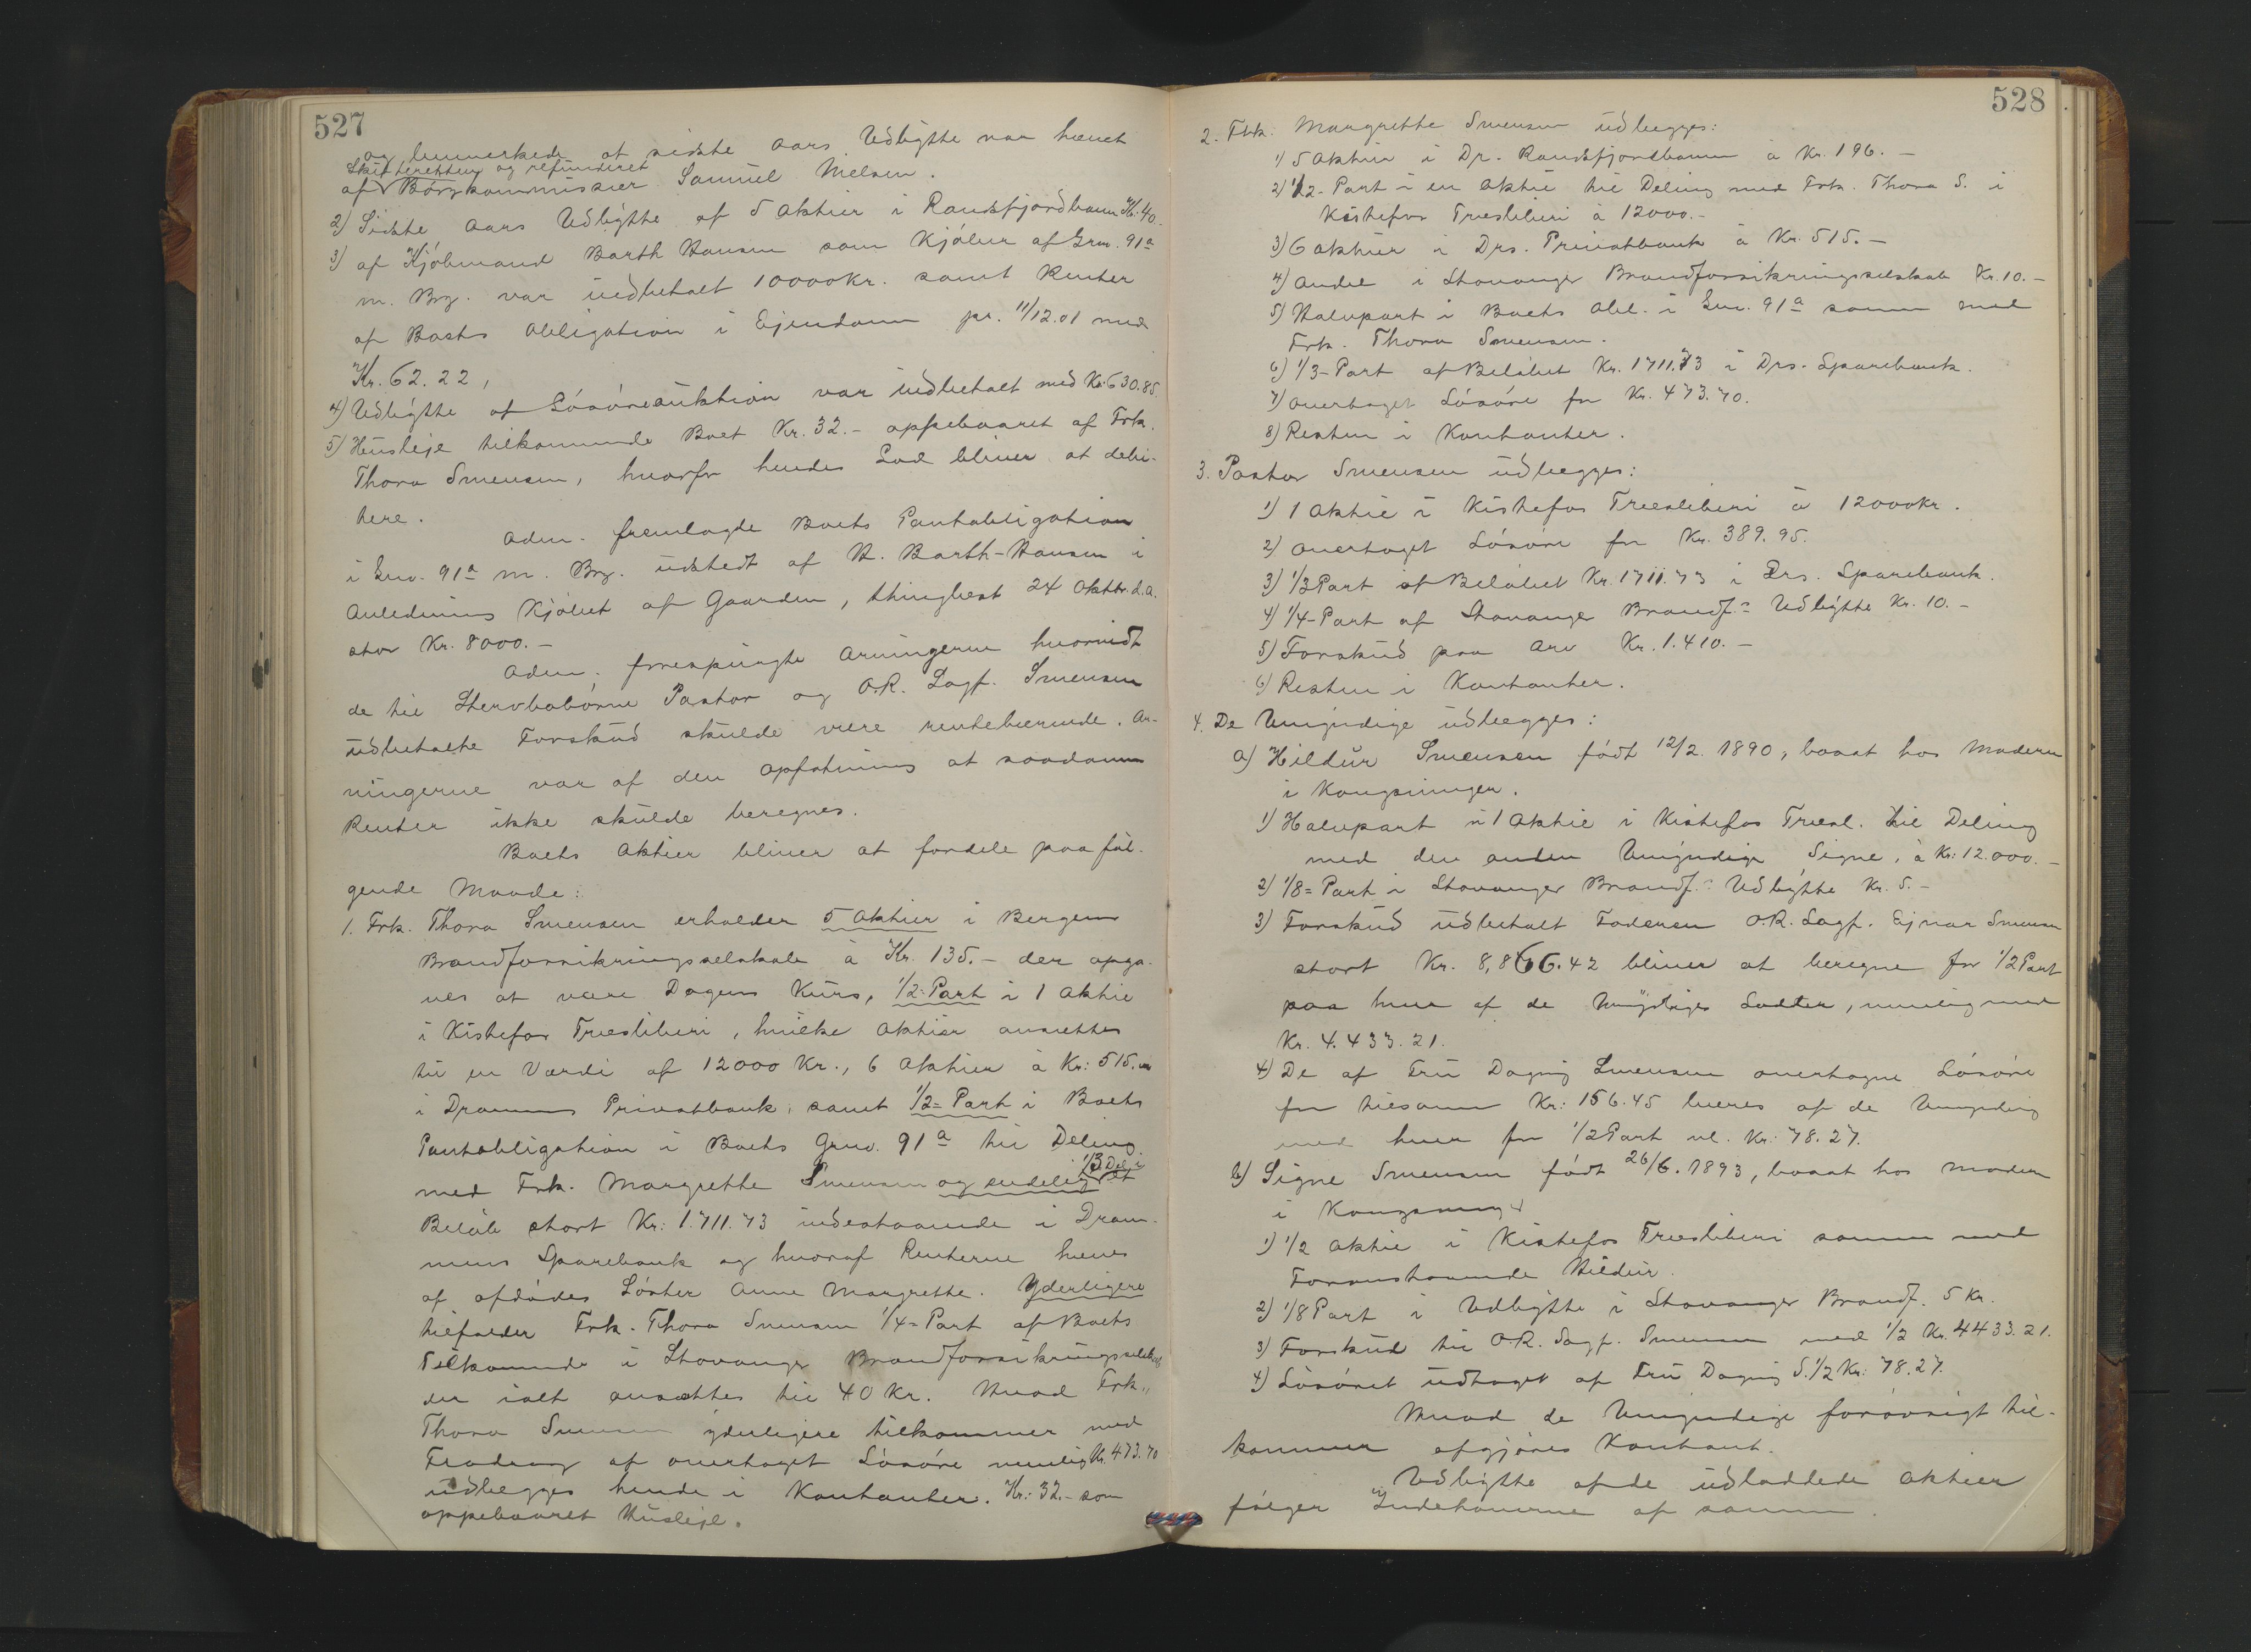 527
og bemerkede at sidste Aars Udbytte var hævet
Skifteretten og refunderet
af Børskommissær Samuel Nielsen.
2) Sidste Aars Udbytte af 5 Aktier i Randsfjordbanen Kr. 40.
3) af Kjøbmand Barth Hansen som Kjøber af Grno. 91a
m. Brg. var indbetalt 10000 Kr. samt Renter
af Boets Obligation i Ejendom pr. 11/12.01 med
Kr. 62.22,
4) Udbytte af Løsøreauktion var indbetalt med Kr: 630.85.
5) Husleje tilkommende Boet Kr. 32.- oppebaaret af Frk.
Thora Svensen, hvorfor hendes Lod bliver at debi-
tere.
Adm. fremlagde Boets Pantobligation
i Grno. 91a m. Brg. udstedt af H. Barth-Hansen i
Anledning Kjøbet af Gaarden, thinglæst 24 Oktbr. d.a.
stor Kr. 8000.-
Adm. forespurgte Arvingerne hvorvidt
de til Stervbobørne Pastor og O.R. Sagf. Svensen
udbetalte Forskud skulde være rentebærende. Ar-
vingerne var af den Opfatning at saadanne
Renter ikke skulde beregnes.
Boets Aktier bliver at fordele paa føl-
gende Maade:
1. Frk. Thora Svensen erholder 5 Aktier i Bergens
Brandforsikringsselskab à Kr. 135.- der opga-
ves at være Dagens Kurs, 1/2-Part i 1 Aktie
i Kistefos Træsliberi, hvilke Aktier ansættes
til en Værdi af 12000 Kr., 6 Aktier à Kr: 515.-
i Drammens Privatbank, samt 1/2-Part i Boets
Pantobligation i Boets Grno. 91a til Deling
1/3 Del i
med Frk. Margrethe Svensen og endelig et
Beløb stort Kr: 1.711.73 indestaaende i Dram-
mens Sparebank og hvoraf Renterne hæves
af afdødes Søster Anne Margrethe. Yderligere
tilfalder Frk. Thora Svensen 1/4-Part af Boets
Tilkommende i Stavanger Brandforsikringsselskab
der ialt ansættes til 40 Kr. Hvad Frk.
Thora Svensen yderligere tilkommer med
Fradrag af overtaget Løsøre nemlig Kr. 473.70
udlægges hende i Kontanter. Kr: 32.- som
oppebaaret Husleje.
528
2. Frk. Margrethe Svensen udlægges:
1) 5 Aktier i Dr. Randsfjordbanen à Kr. 196.-
2) 1/2-Part i en Aktie til Deling med Frk. Thora S. i
Kistefos Træsliberi à 12000.-
3) 6 Aktier i Drs. Privatbank à Kr. 515.-
4) Andel i Stavanger Brandforsikringsselskab Kr. 10.-
5) Halvpart i Boets Obl. i Grno. 91a sammen med
Frk. Thora Svensen.
6) 1/3-Part af Beløbet Kr. 1711.73 i Drs. Sparebank.
7) Overtaget Løsøre for Kr. 473.70.
8) Resten i Kontanter.
3. Pastor Svensen udlægges:
1) 1 Aktie i Kistefos Træsliberi à 12000 Kr.
2) Overtaget Løsøre for Kr. 389.95.
3) 1/3 Part af Beløbet Kr. 1711.73 i Drs. Sparebank.
4) 1/4-Part af Stavanger Brandf.- Udbytte Kr. 10.-
5) Forskud paa Arv Kr. 1.410.-
6) Resten i Kontanter.
4. De Umyndige udlægges:
a) Hildur Svensen født 12/2. 1890, bosat hos Moderen
i Kongsvinger.
1) Halvpart i 1 Aktie i Kistefos Træsl. til Deling
med den anden Umyndige Signe, à Kr: 12.000.-
2) 1/8-Part i Stavanger Brandf.- Udbytte Kr. 5.-
3) Forskud udbetalt Faderen O.R. Sagf. Ejnar Svensen
stort Kr. 8,866.42 bliver at beregne for 1/2 Part
paa hver af de Umyndiges Lodder, nemlig med
Kr. 4.433.21.
4) De af Fru Dagny Svensen overtagne Løsøre
for tilsammen Kr: 156.45 bæres af de Umyndige
med hver for 1/2 Part nl. Kr: 78.27.
b) Signe Svensen født 26/6. 1893, bosat hos Moderen
i Kongsvinger
1) 1/2 Aktie i Kistefos Træsliberi sammen med
Foranstaaende Hildur.
2) 1/8 Part i Udbytte i Stavanger Brandf. 5 Kr.
3) Forskud til O.R. Sagf. Svensen med 1/2 Kr. 4433.21.
4) Løsøret udtaget af Fru Dagny S. 1/2 Kr: 78.27.
Hvad de Umyndige forøvrigt til-
kommer afgjøres Kontant.
Udbytte af de udloddede Aktier
følger Indehaverne af samme.